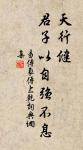 天行健
君子以自强不息
易傳象傳上乾詞典網
集